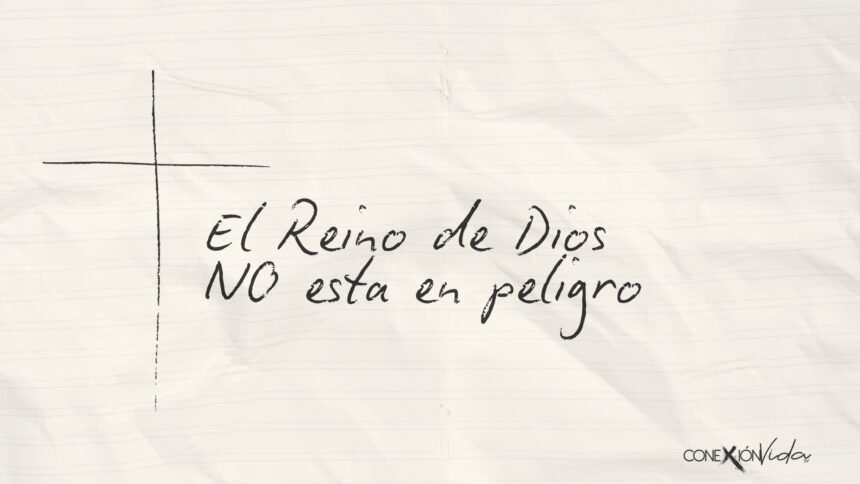 El Reino de Dios
NO esta en peligro
CONEXIÓN Vida